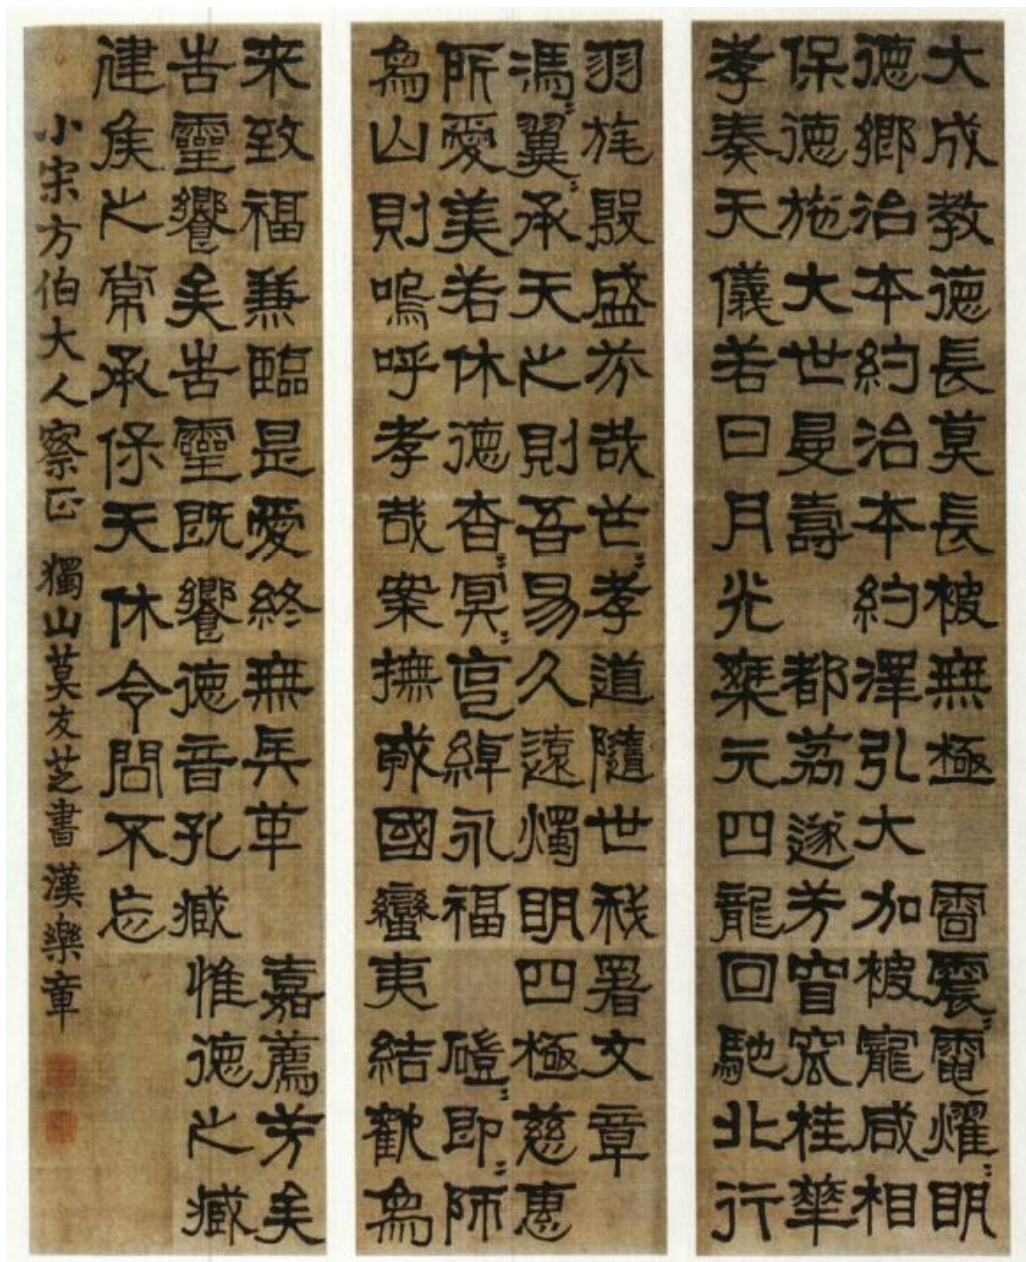 大成教德長莫長被無極 雷震〻電燿〻明
德鄉治本約治本約澤引大 加被寵咸相
保德施大世曼壽 都荔遂芳窅窊桂華
孝奏天儀若日月光椉元四龍回馳北行
羽旄殷盛芬哉芒〻孝道隨世我署文章
馮〻翼〻承天之則吾易久遠燭明四極慈惠
所愛美若休德杳〻冥〻克綽永福 磑〻即〻師
象山則嗚呼孝哉案撫戎國蠻夷結歡象
来致福兼臨是愛終無兵革 嘉薦芳矣
告靈饗矣告靈既饗德音孔臧 惟德之臧
建侯之常承保天休令問不忘
小宋方伯大人察正 獨山莫友芝書漢樂章